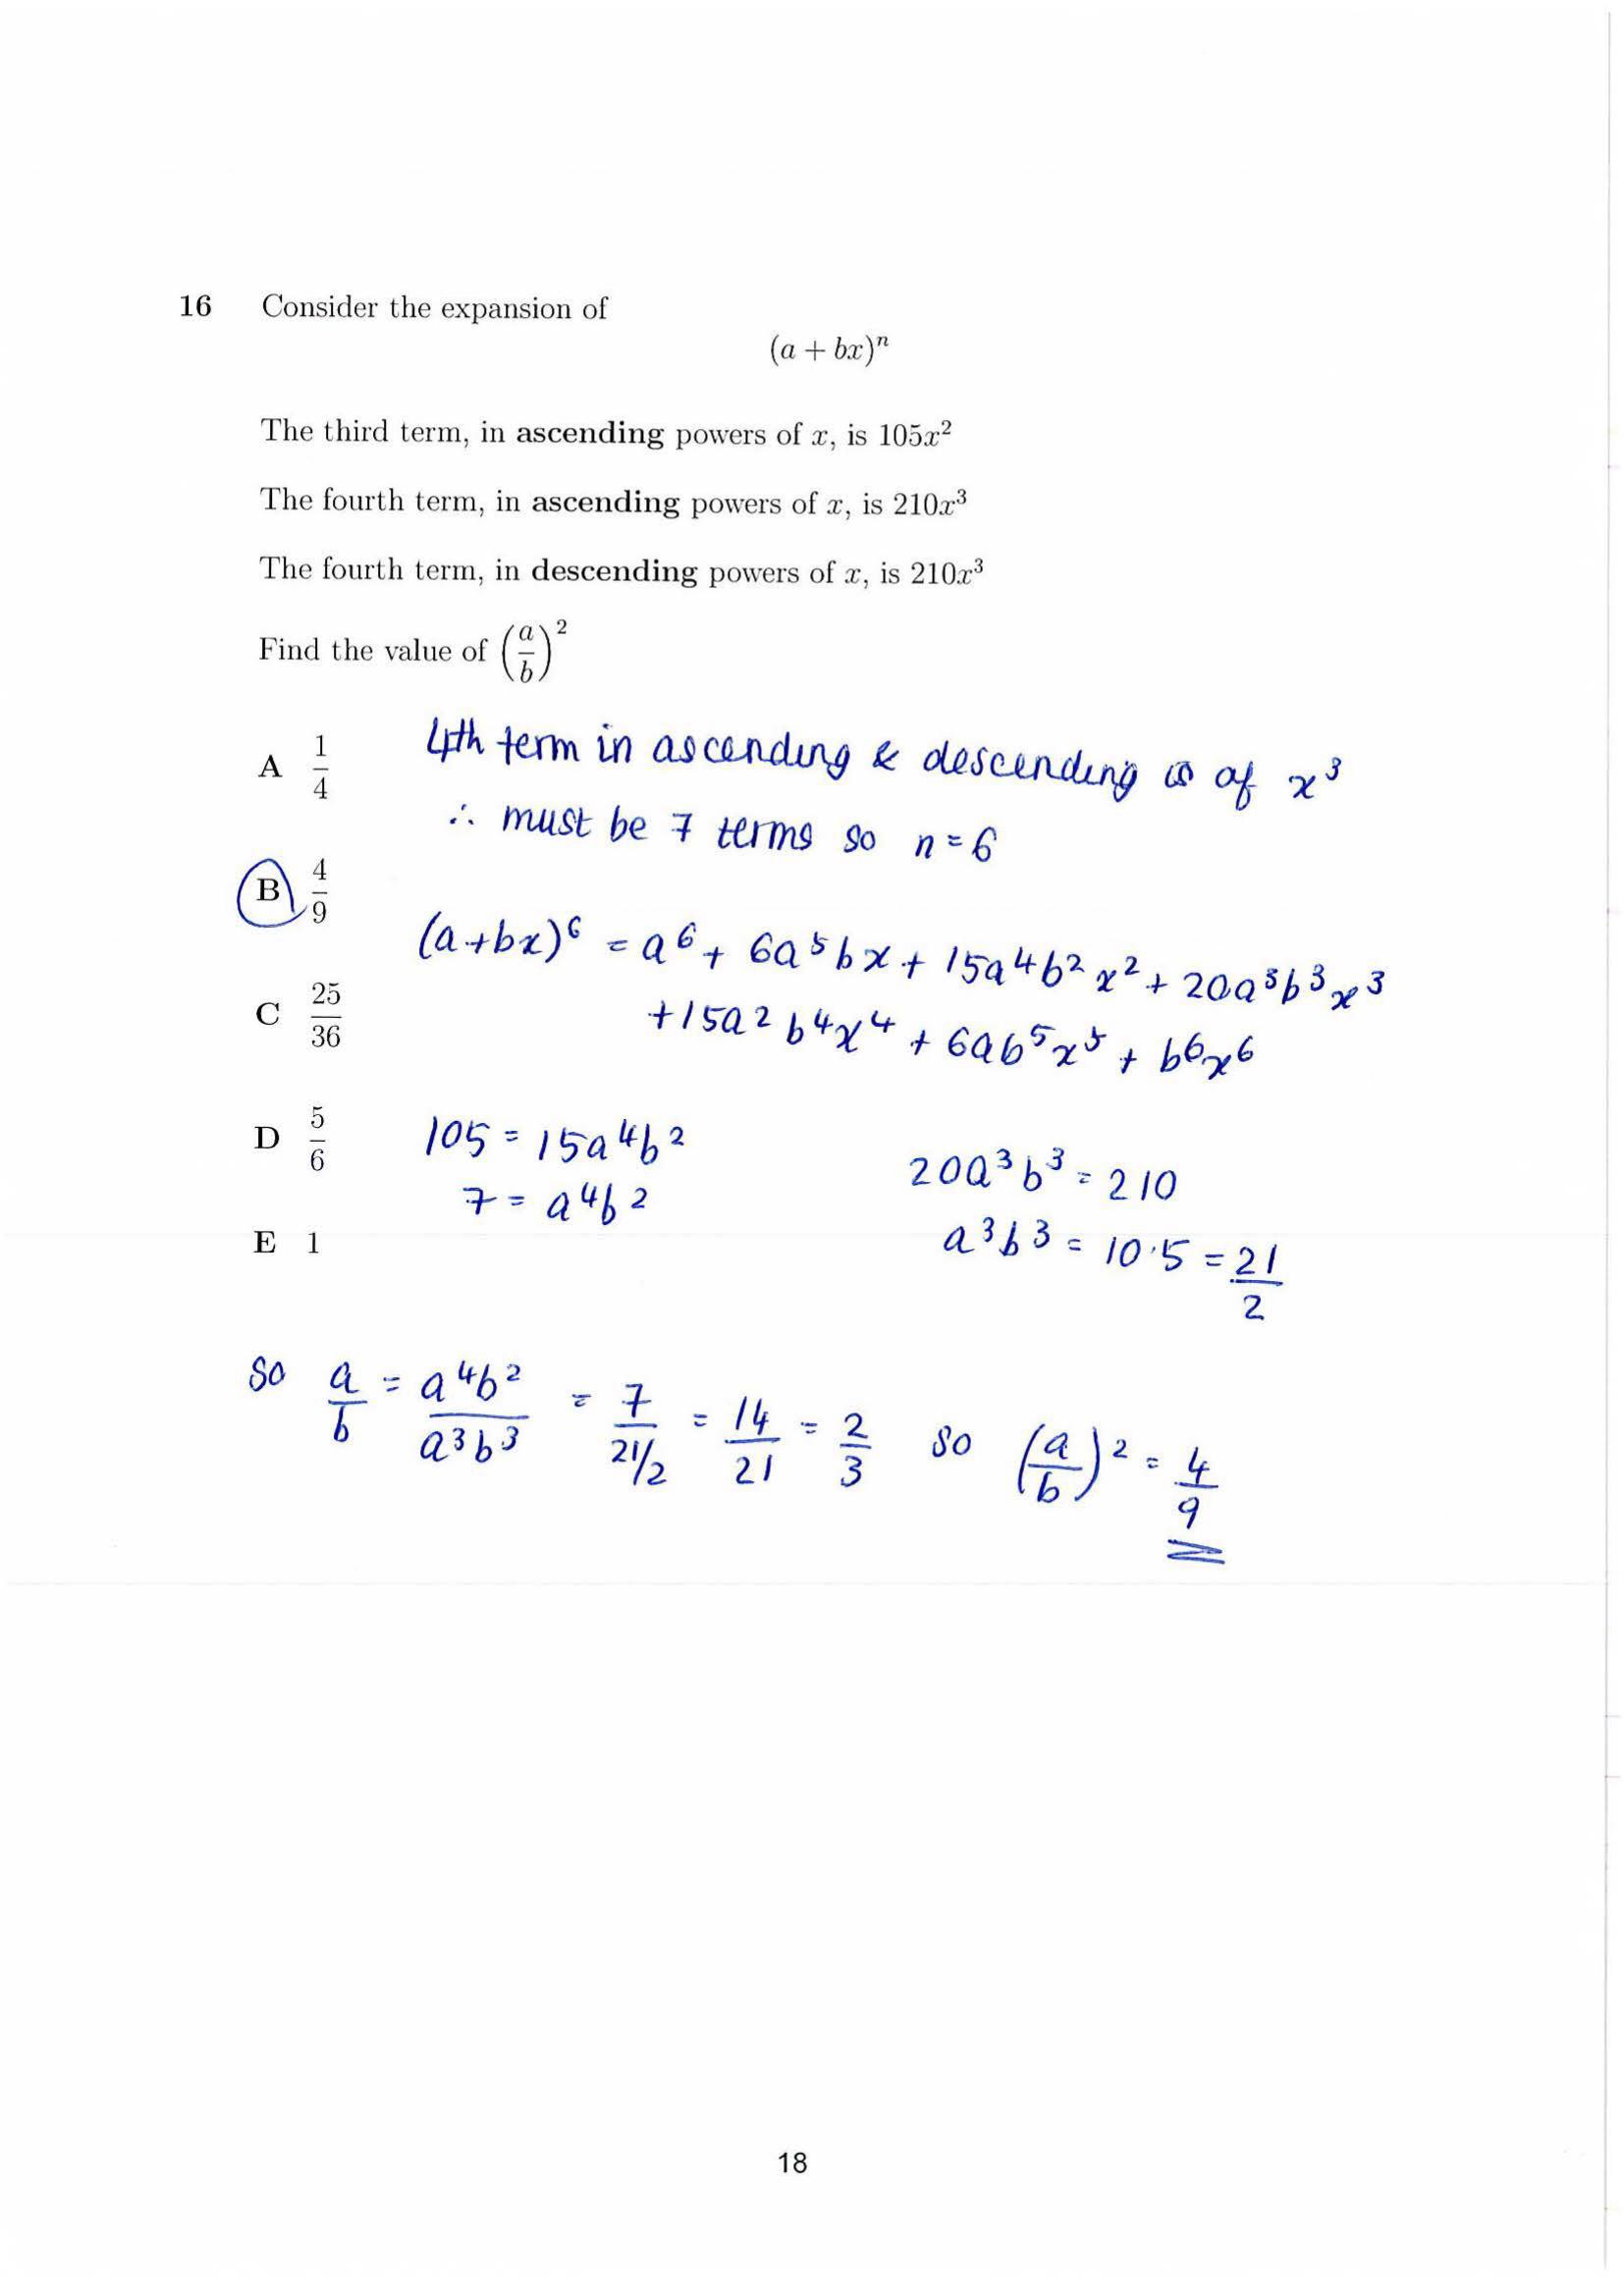 16 Consider the expansion of
(a + bx)ⁿ
The third term, in ascending powers of x, is 105x²
The fourth term, in ascending powers of x, is 210x³
The fourth term, in descending powers of x, is 210x³
Find the value of (a/b)²
A 1/4
4th term in ascending & descending is of x³
∴ must be 7 terms so n = 6
B 4/9
(a+bx)⁶ = a⁶ + 6a⁵bx + 15a⁴b²x² + 20a³b³x³
+15a²b⁴x⁴ + 6ab⁵x⁵ + b⁶x⁶
C 25/36
D 5/6
105 = 15a⁴b²
7 = a⁴b²
20a³b³ = 210
a³b³ = 10·5 = 21/2
E 1
so a/b = a⁴b²/a³b³ = 7/21/2 = 14/21 = 2/3 so (a/b)² = 4/9
18